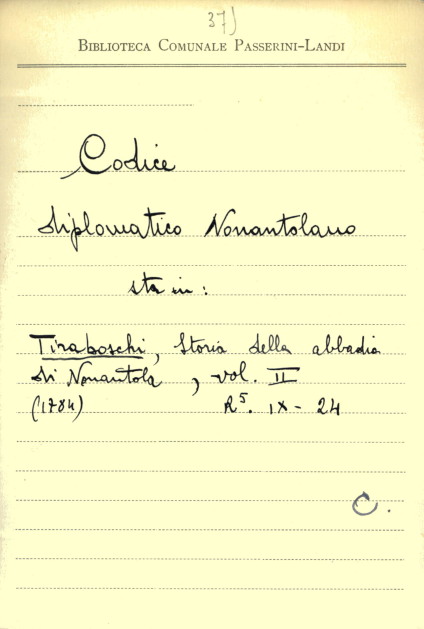 37)
BIBLIOTECA COMUNALE PASSERINI-LANDI
Codice
diplomatico Nonantolano
sta in:
Tiraboschi, Storia della abbadia
di Nonantola, vol. II
(1784) R⁵. IX - 24
C.